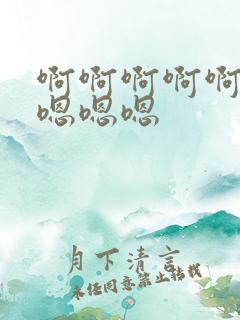 啊啊啊啊啊
嗯嗯嗯
月下清言
未经同意禁止转载